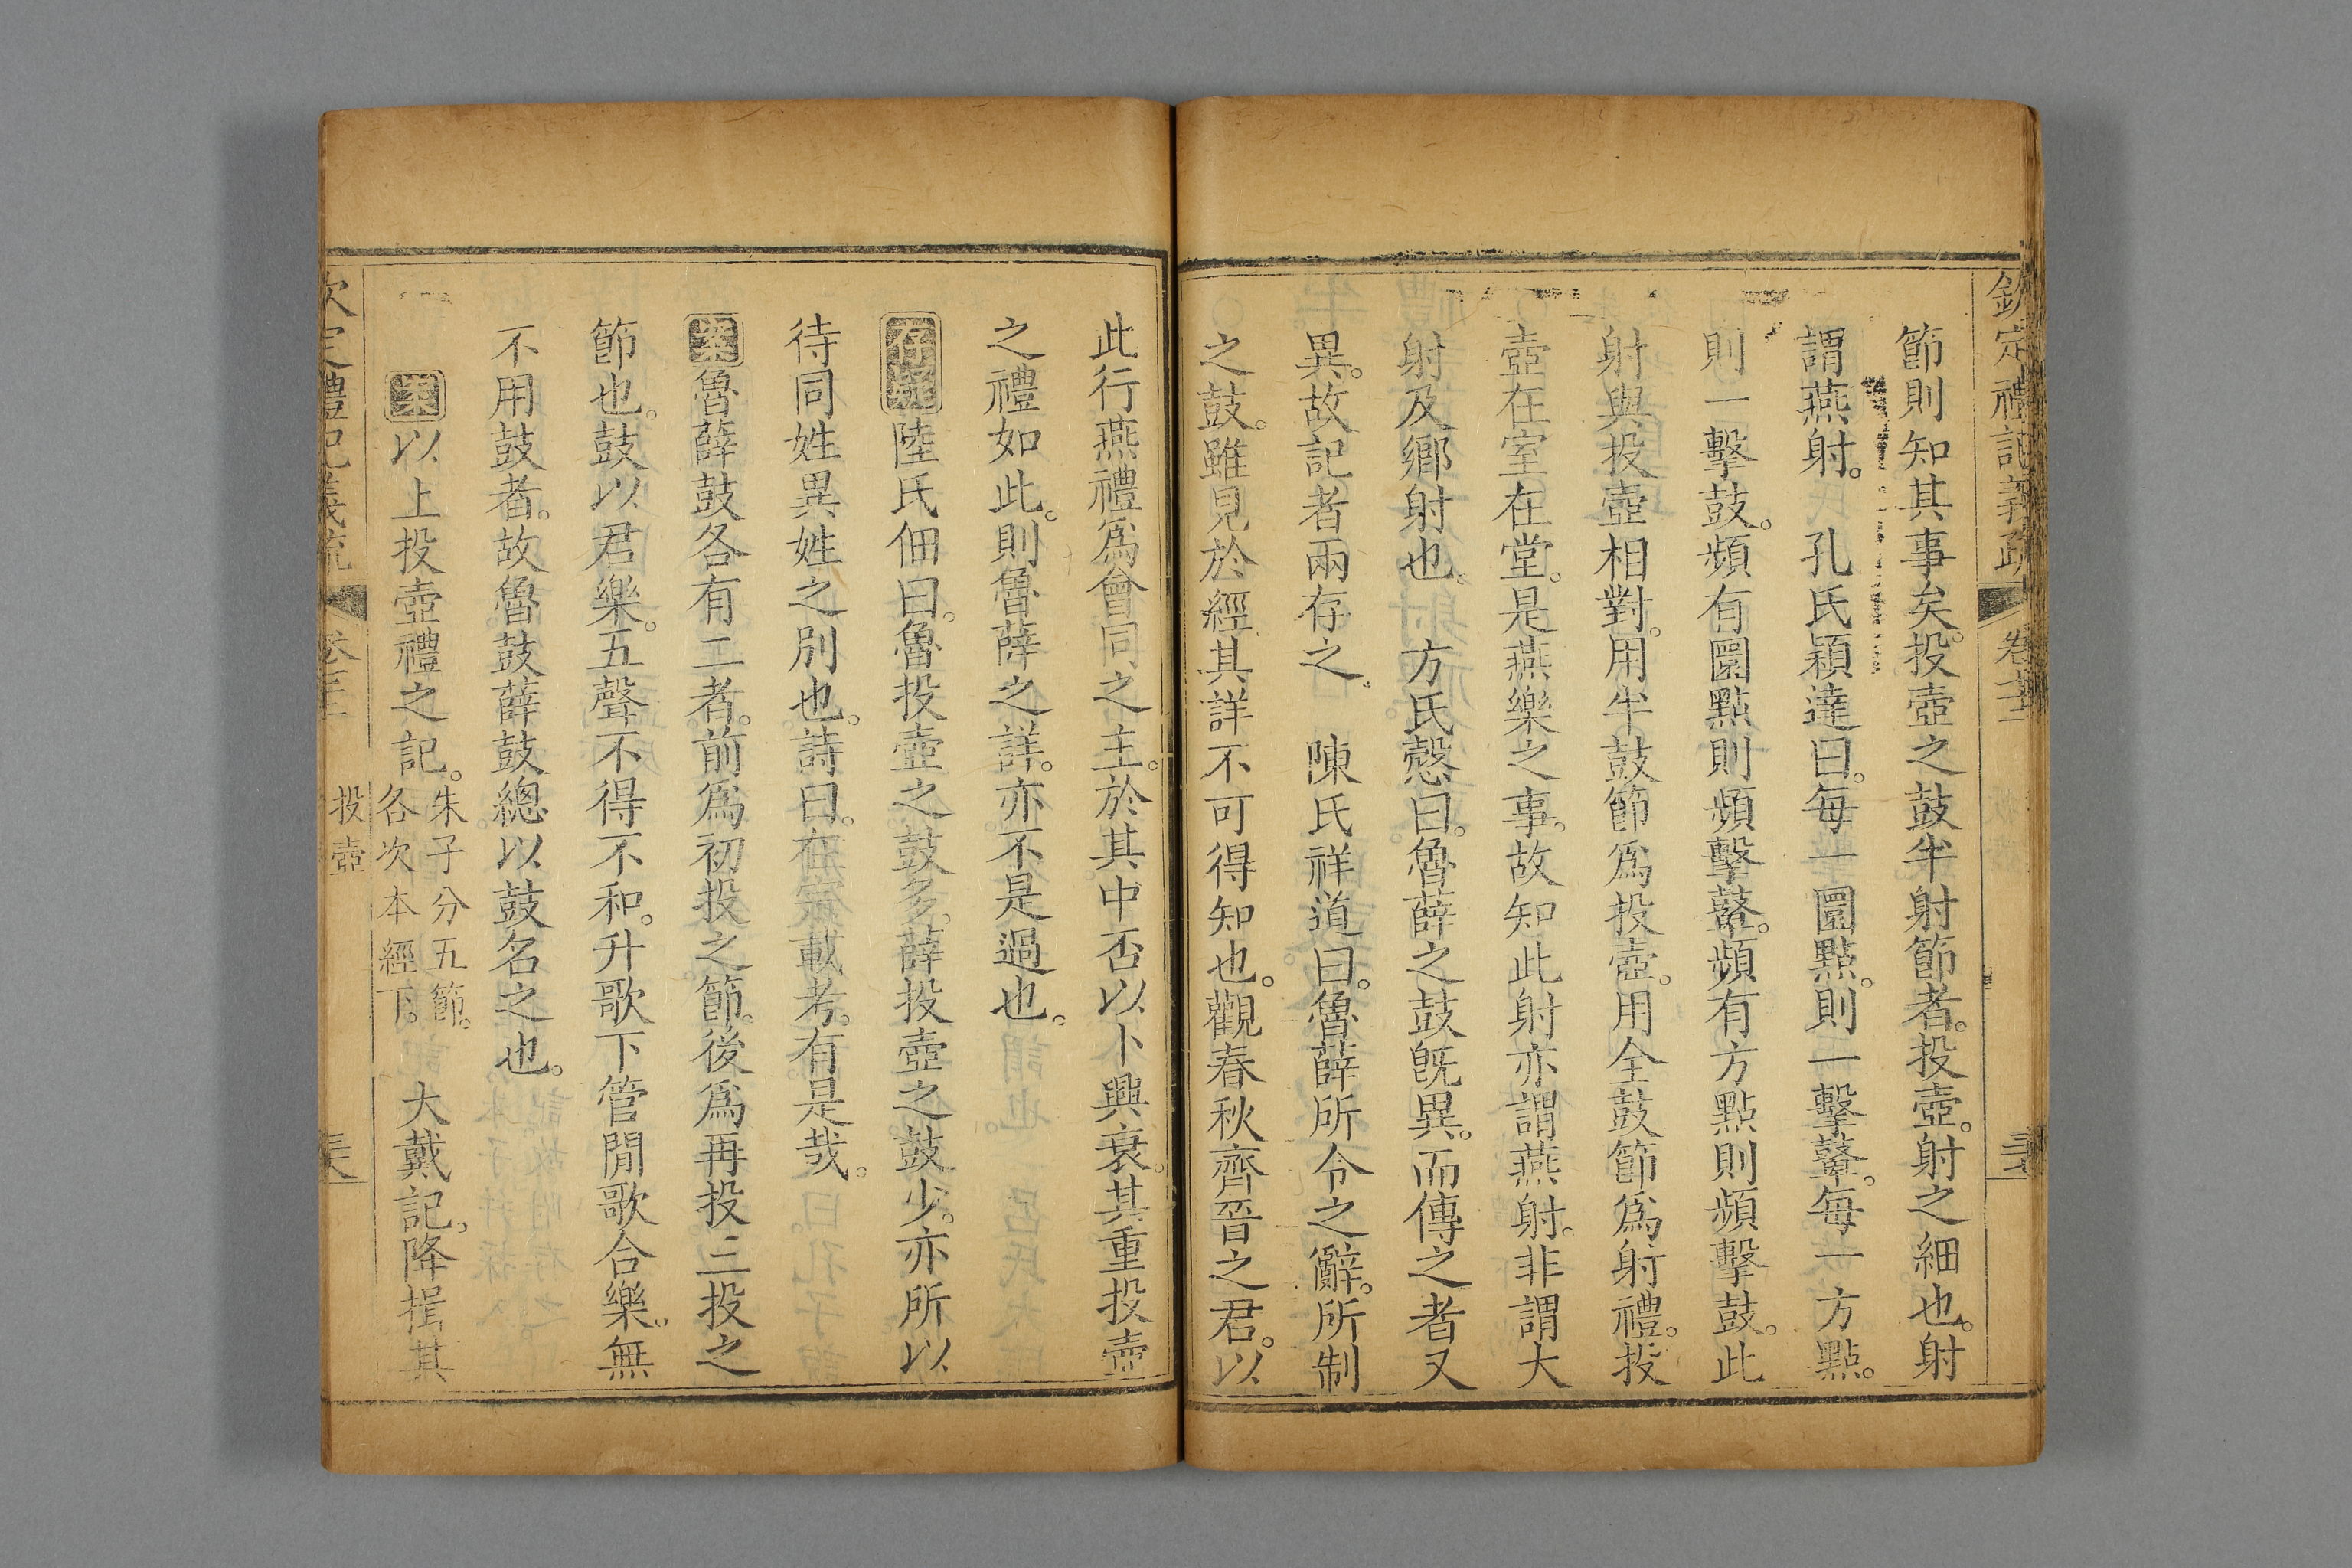 欽定禮記義疏 卷 投壺
節則知其事矣。投壺之鼓半射節者。投壺。射之細也。射
謂燕射。 孔氏穎達曰。每一圜點。則一擊鼙。每一方點。
則一擊鼓。頻有圜點則頻擊鼙。頻有方點則頻擊鼓。此
射與投壺相對。用半鼓節爲投壺。用全鼓節爲射禮。投
壺在室在堂。是燕樂之事。故知此射亦謂燕射。非謂大
射及鄉射也。 方氏慤曰。魯薛之鼓旣異。而傳之者又
異。故記者兩存之。 陳氏祥道曰。魯薛所令之辭。所制
之鼓。雖見於經。其詳不可得知也。觀春秋齊晉之君。以
此行燕禮爲會同之主。於其中否以卜興衰。其重投壺
之禮如此。則魯薛之詳。亦不是過也。
存疑陸氏佃曰。魯投壺之鼓多。薛投壺之鼓少。亦所以
待同姓異姓之別也。詩曰。在宗載考。有是哉。
案魯薛鼓各有二者。前爲初投之節。後爲再投三投之
節也。鼓以君樂。五聲不得不和。升歌下管閒歌合樂。無
不用鼓者。故魯鼓薛鼓總以鼓名之也。
案以上投壺禮之記。朱子分五節。各次本經下。 大戴記。降揖其
欽定禮記義疏 投壺